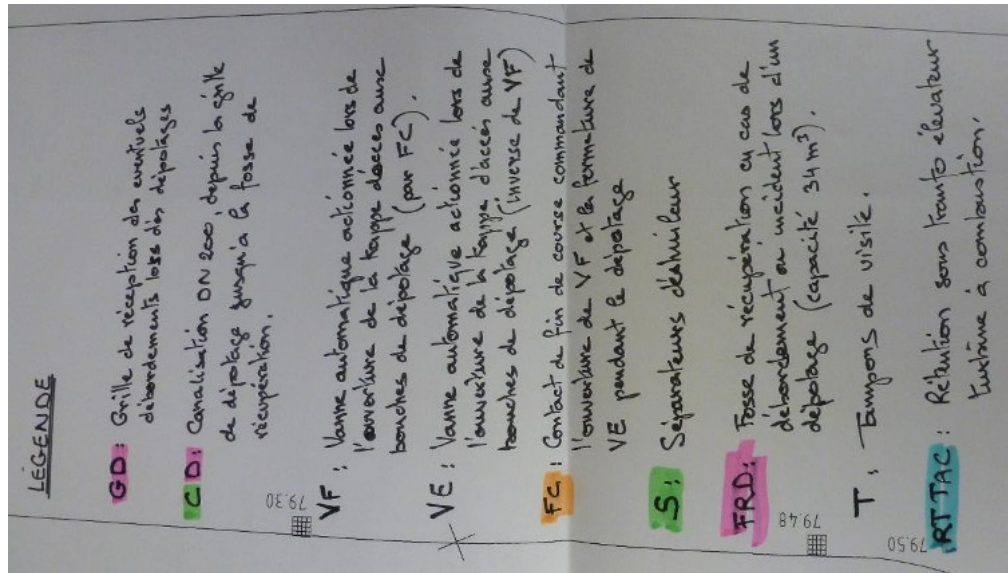 LÉGENDE
GD: Grille de réception des éventuels
débordements lors des dépotages
CD: Canalisation DN 200, depuis la grille
de dépotage jusqu'à la fosse de
récupération.
VF: Vanne automatique actionnée lors de
l'ouverture de la trappe d'accès aux
bouches de dépotage (par FC).
VE: Vanne automatique actionnée lors de
l'ouverture de la trappe d'accès aux
bouches de dépotage (inverse de VF)
FC: Contact de fin de course commandant
l'ouverture de VF et la fermeture de
VE pendant le dépotage
S: Séparateurs déshuileur
FRD: Fosse de récupération en cas de
débordement ou incident lors d'un
dépotage (capacité 34 m³).
T: Tampons de visite.
RTTAC: Rétention sous transfo élévateur
turbine à combustion.
79.30
79.48
79.50